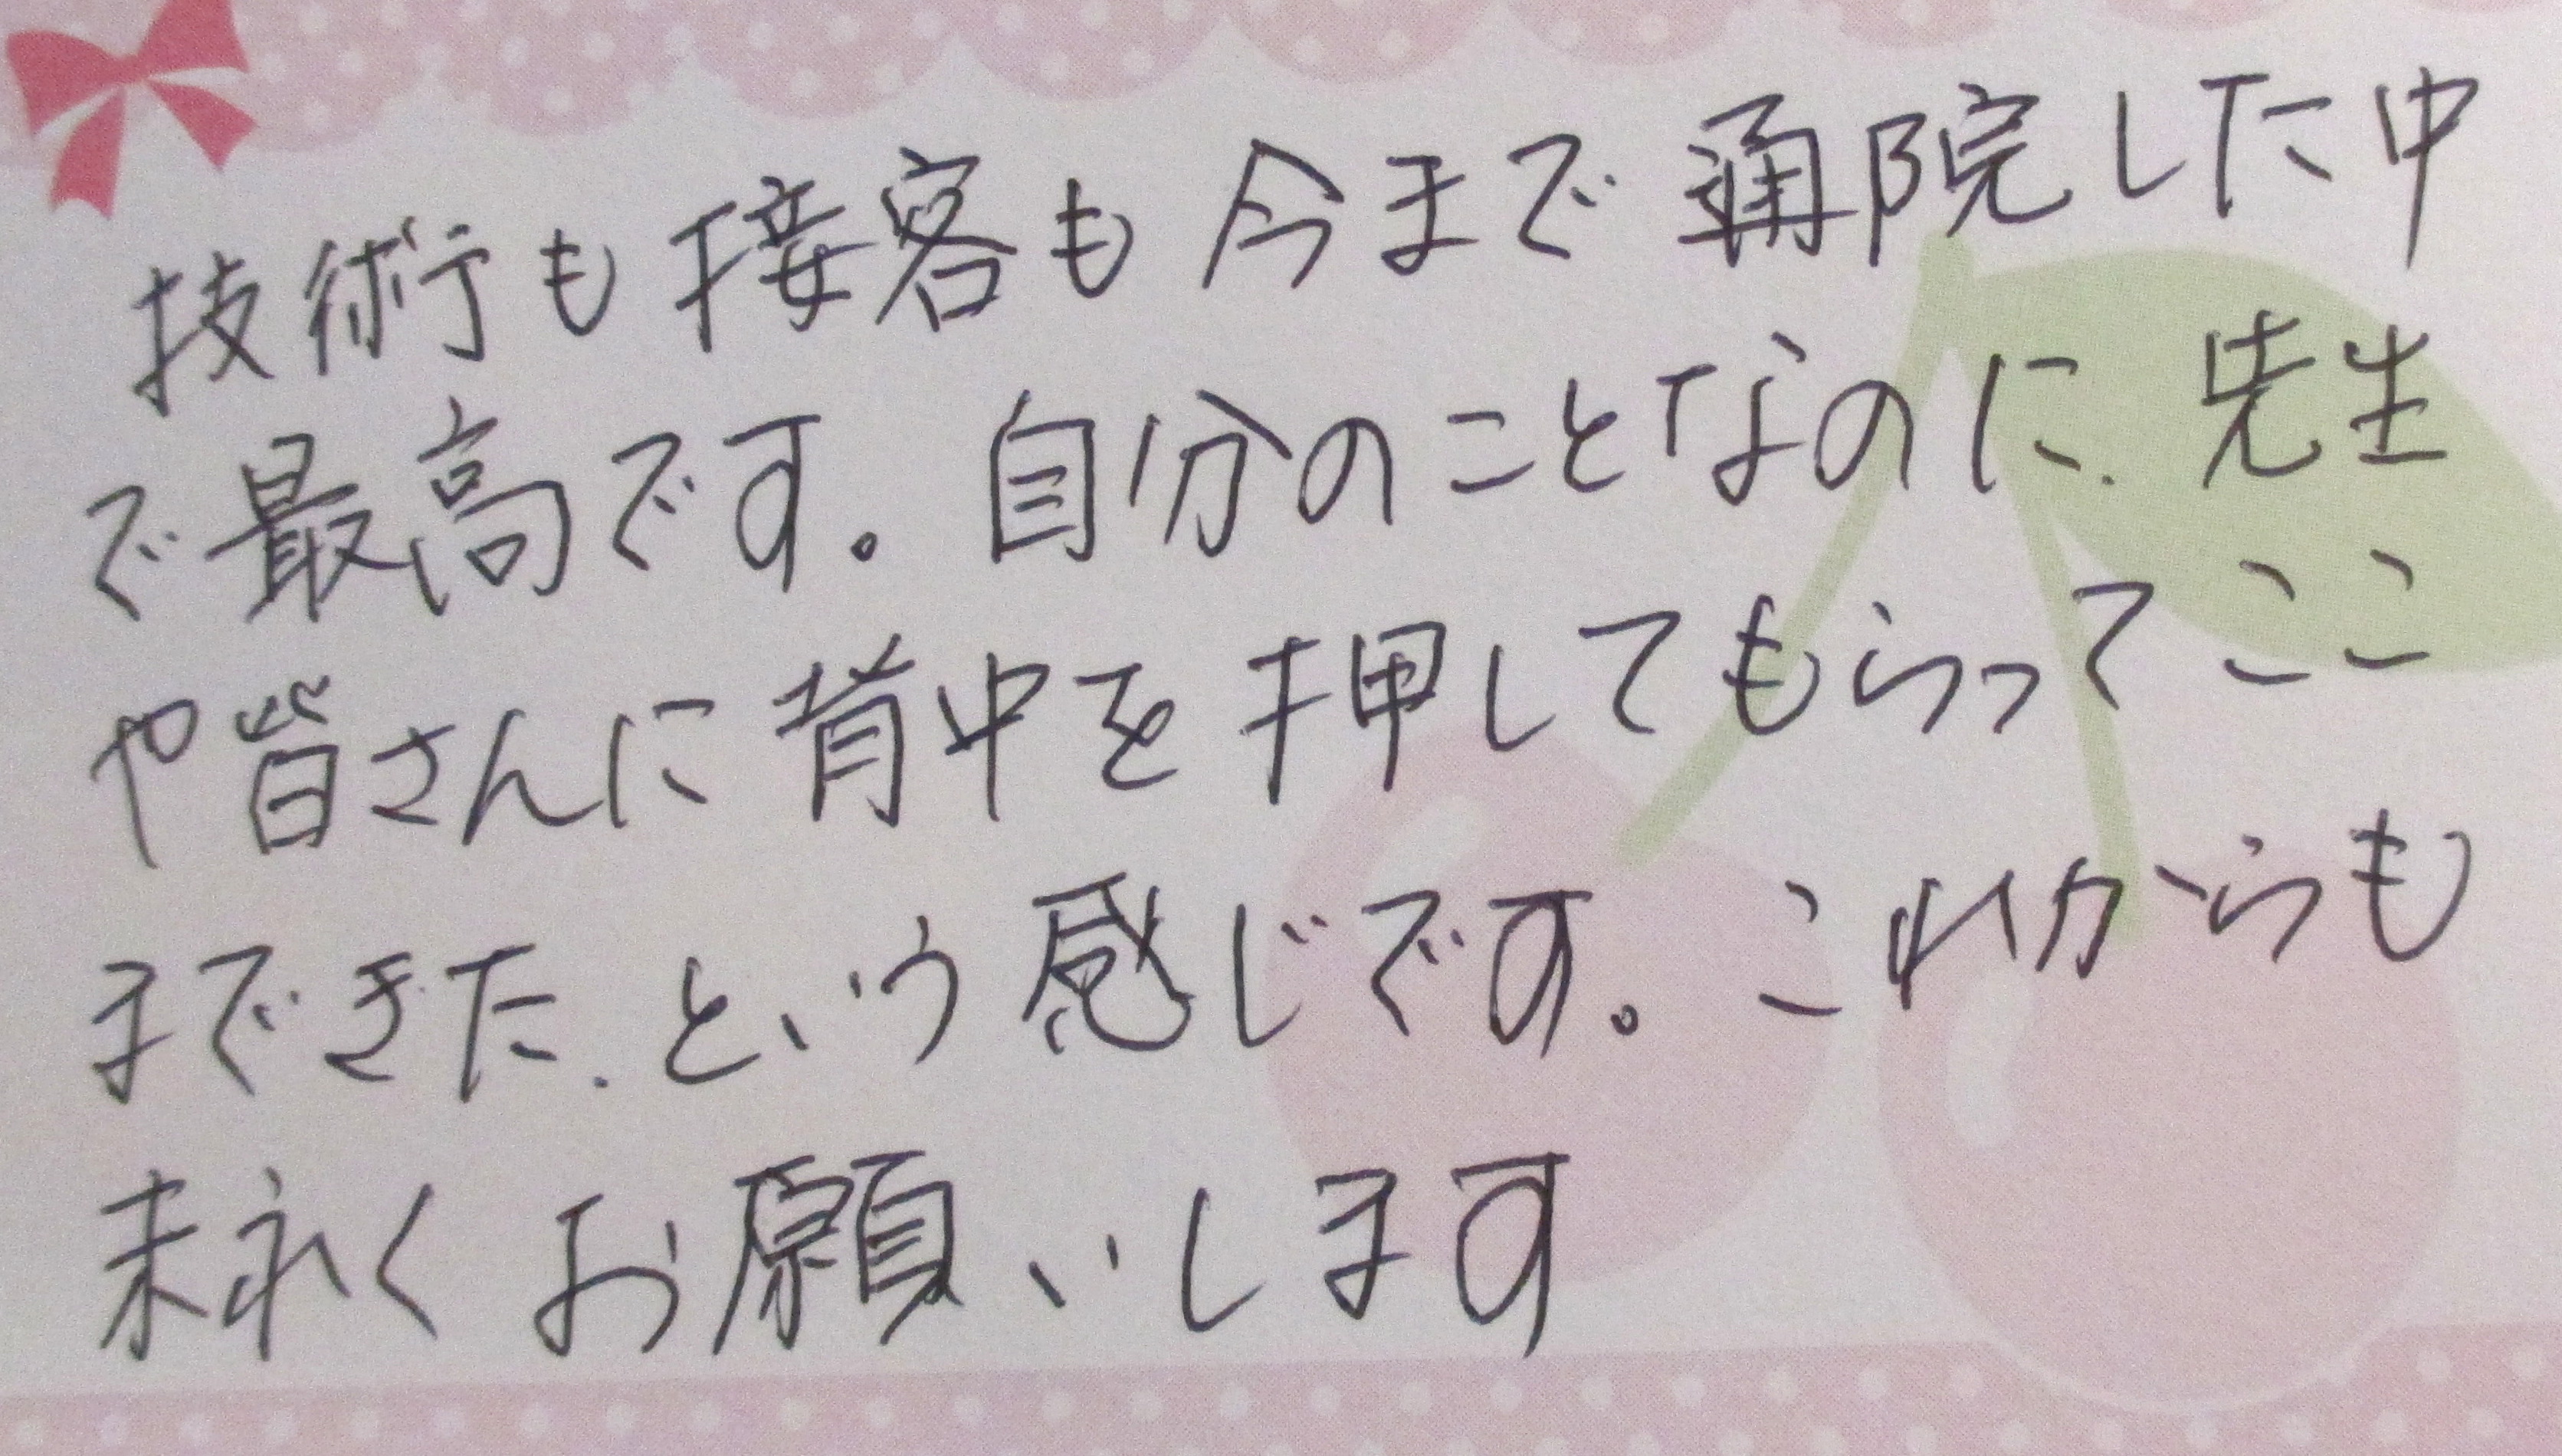 技術も接客も今まで通院した中
で最高です。自分のことなのに、先生
や皆さんに背中を押してもらってここ
まできた、という感じです。これからも
末永くお願いします